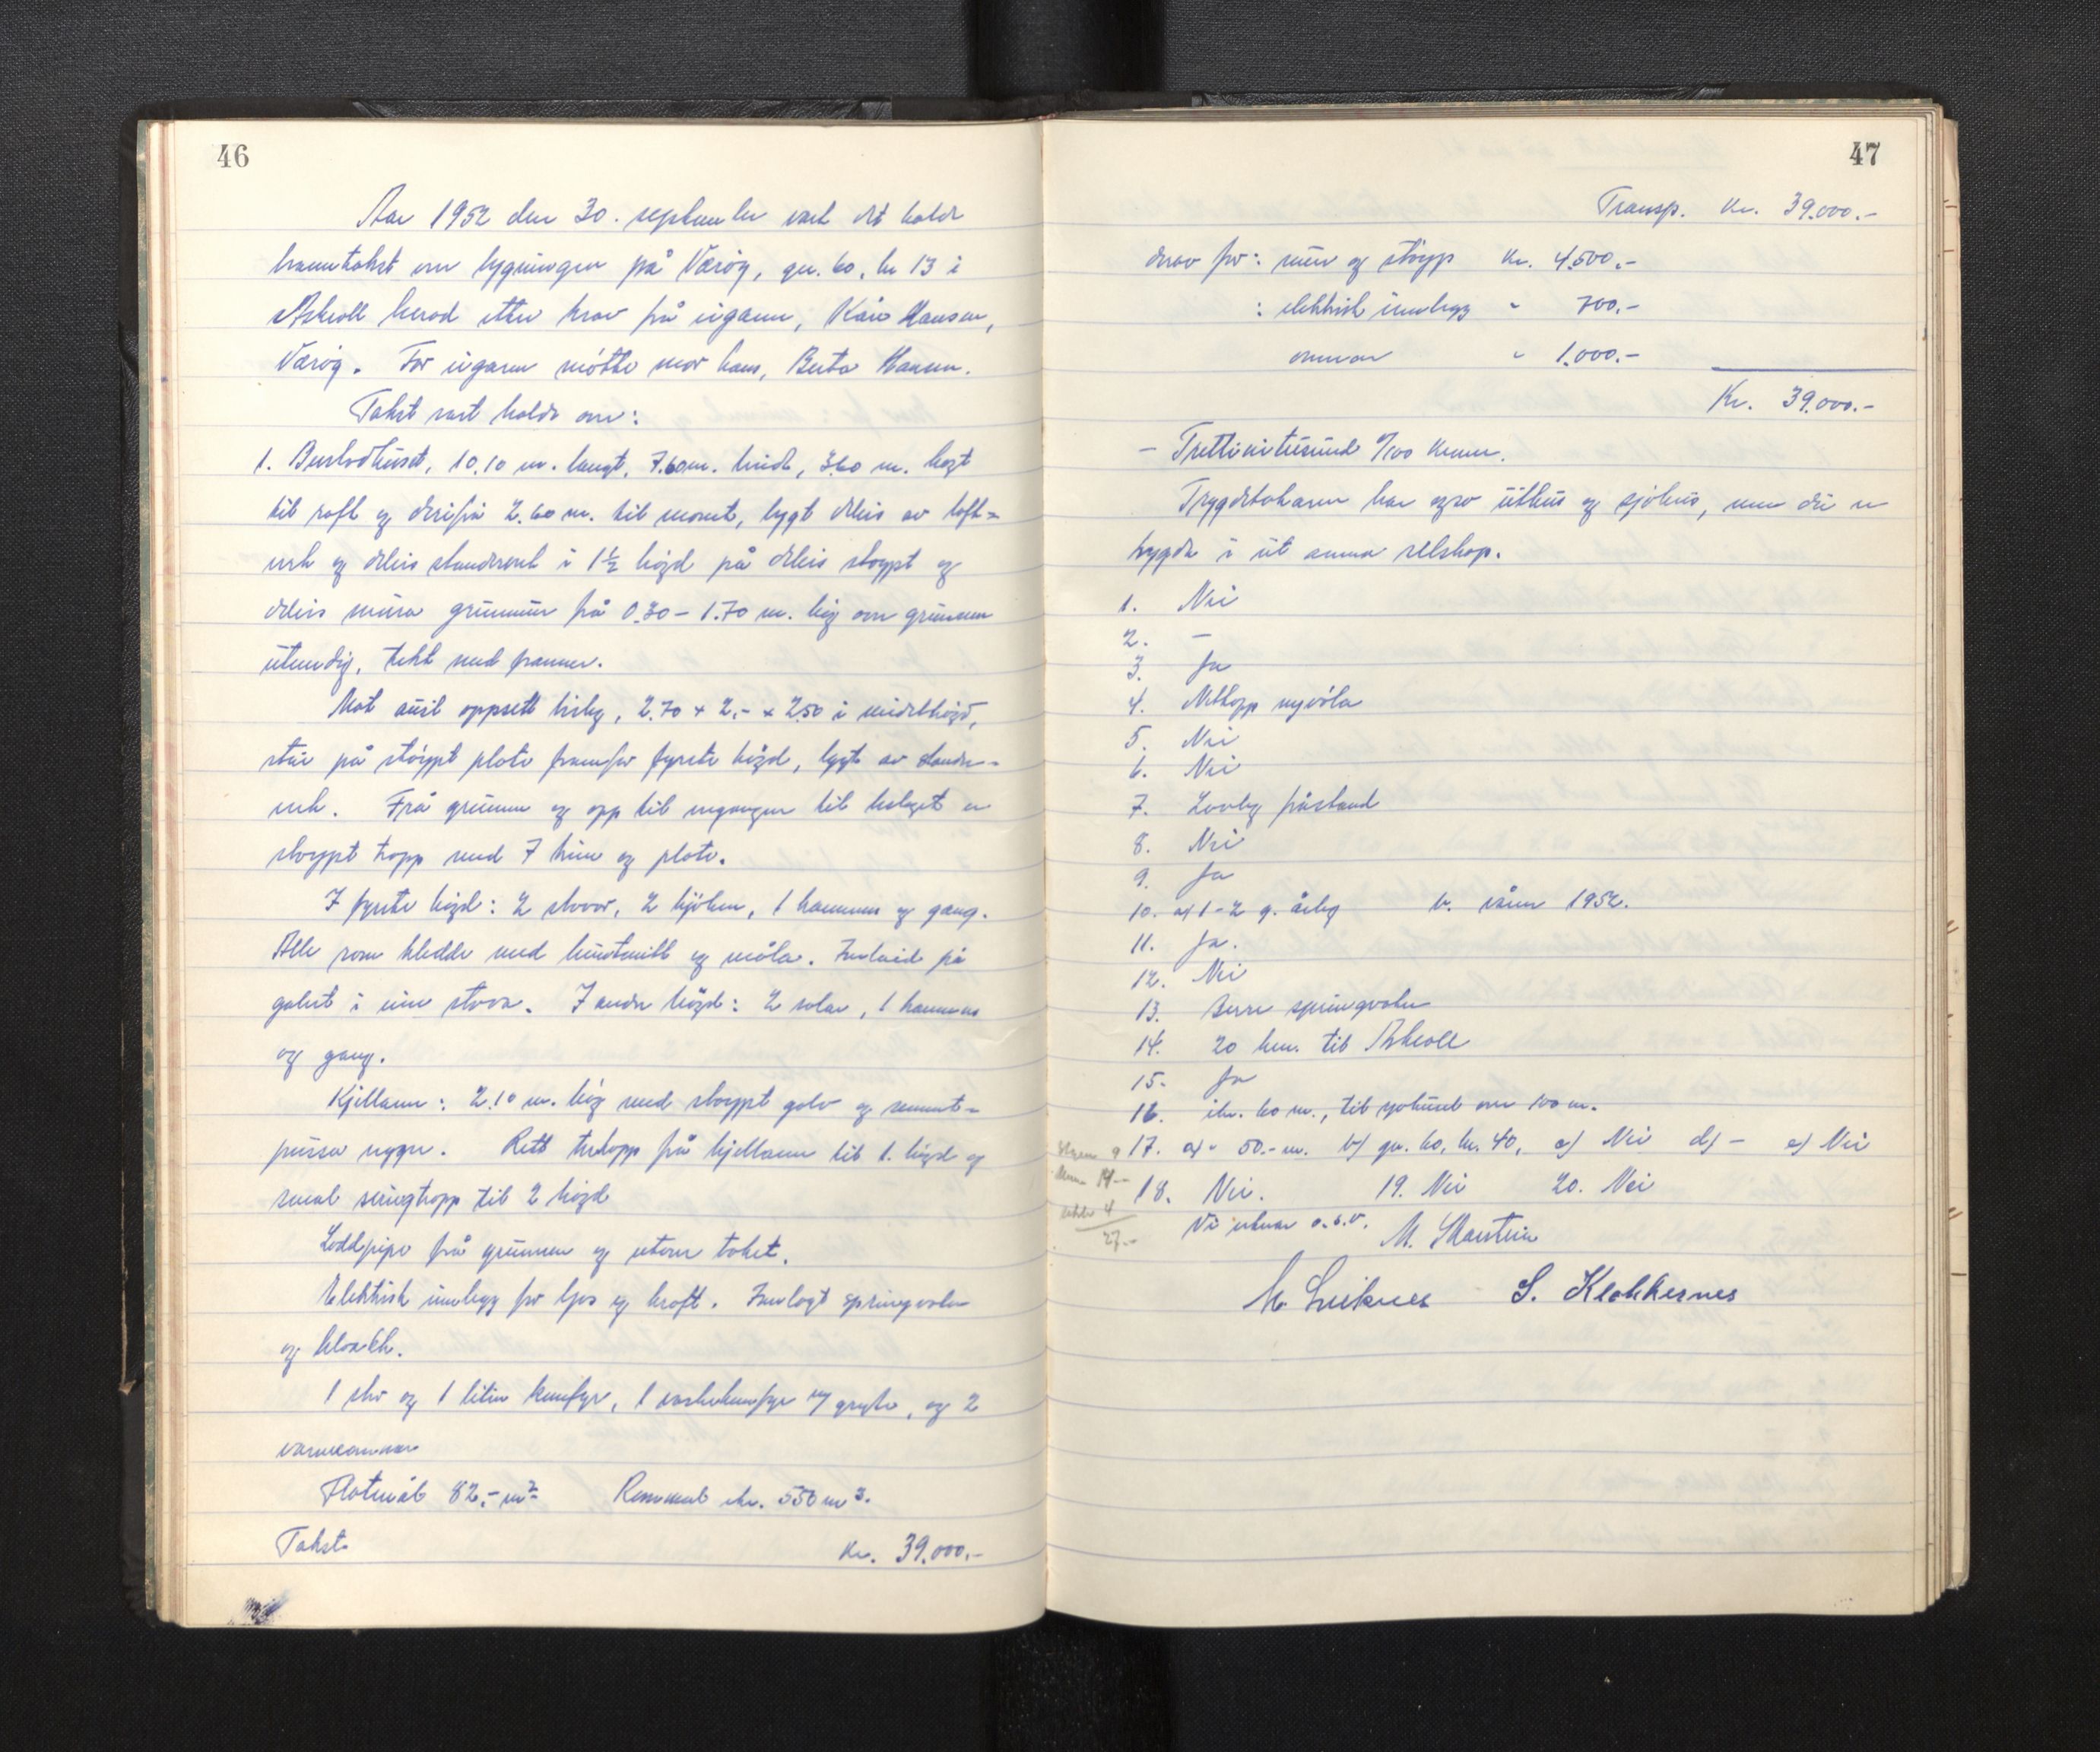 46
Aar 1952 den 30. september vart det halde
branntakst over bygningen på Værøy, gn. 60, br 13 i
Askvoll herad etter krav frå eigaren, Kåre Hansen,
Værøy. For eigaren møtte mor hans, Berta Hansen.
Takst vart halde over:
1. Bustadhuset, 10.10 m. langt, 7.60 m. breidt, 3.60 m. høgt
til raft og derifrå 2.60 m. til mønet, bygt deleis av loft-
verk og deleis standverk i 1½ høgd på deleis støypt og
deleis mura grunnmur frå 0.30 – 1.70 m. høg over grunnen
utvendig, tekt med panner.
Mot aust oppsett bislag, 2.70 x 2,- x 2.50 i middelhøgd,
står på støypt plate framfor fyrste høgd, bygt av stander-
verk. Frå grunnen og opp til inngangen til bislaget er
støypt trapp med 7 trinn og plate.
I fyrste høgd: 2 stover, 2 kjøken, 1 kammers og gang.
Alle rom kledde med huntonitt og måla. Innlaid på
golvet i eine stova. I andre høgd: 2 salar, 1 kammers
og gang.
Kjellaren: 2.10 m. høg med støypt golv og sement-
pussa vegger. Rett tretrapp frå kjellaren til 1. høgd og
smal svingtrapp til 2 høgd
Loddpipe frå grunnen og utover taket.
Elektrisk innlegg for ljos og kraft. Innlagt springvatn
og kloakk.
1 stor og 1 liten komfyr, 1 vaskekomfyr m/ gryte, og 2
varmeomnar
Flatmål 82,- m²   Rommål ca. 550 m³.
Takst   Kr. 39.000.-
47
Transp. Kr. 39.000.-
derav for: mur og støyp   Kr. 4.500.-
: elektrisk innlegg   "   700.-
omnar   "   1.000.-
Kr. 39.000.-
– Trettinitusund 0/100 kroner.
Trygdetakaren har ogso uthus og sjøhus, men dei er
trygda i eit anna selskap.
1. Nei
2. –
3. Ja
4. Nettopp nymåla
5. Nei
6. Nei
7. Lovleg påstand
8. Nei
9. Ja
10. a) 1-2 g. årleg   b. våren 1952.
11. Ja.
12. Nei
13. Berre springvatn
14. 20 km. til Askvoll
15. Ja
16. ikr. 60 m., til sjøhuset over 100 m.
17. a) " 50.- m. b) gn. 60, br. 40, c) Nei d) – e) Nei
18. Nei.   19. Nei   20. Nei
27.-
Vi erkner o.s.v.   M. Skarstein
S. Klokkernes